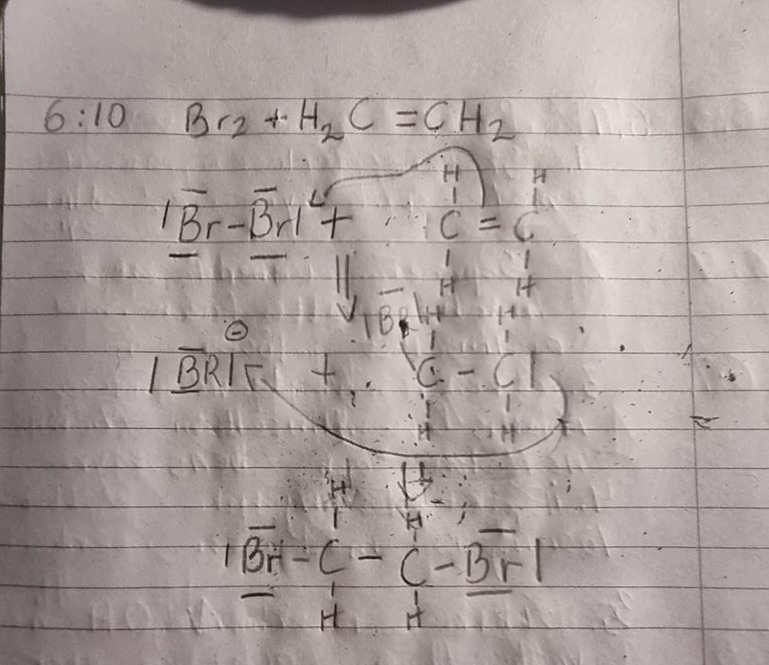 6:10 Br2 + H2C = CH2
H H
|Br-Br| + C = C
H H
|BR| H H
⊖
|BR| + C - C|
H H
H H
|Br - C - C - Br|
H H